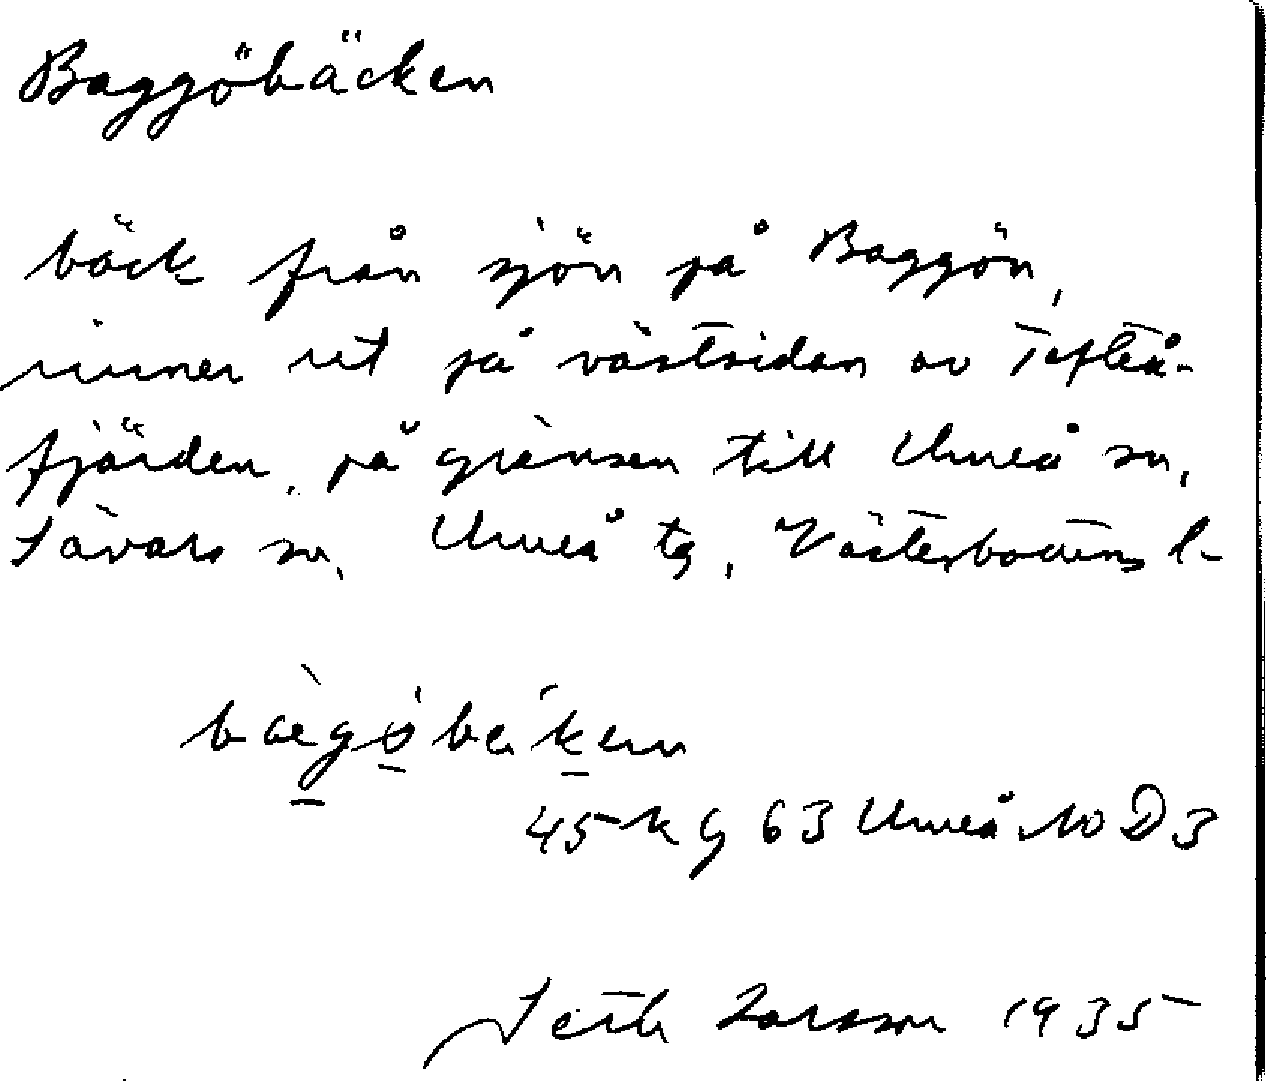 Baggöbäcken
bäck från sjön på Baggön,
rinner ut på västsidan av Tefteå-
fjärden, på gränsen till Umeå sn,
Sävars sn, Umeå tg, Västerbottens l-
45 k g 63 Umeå NO D 3
Seth Larsson 1935